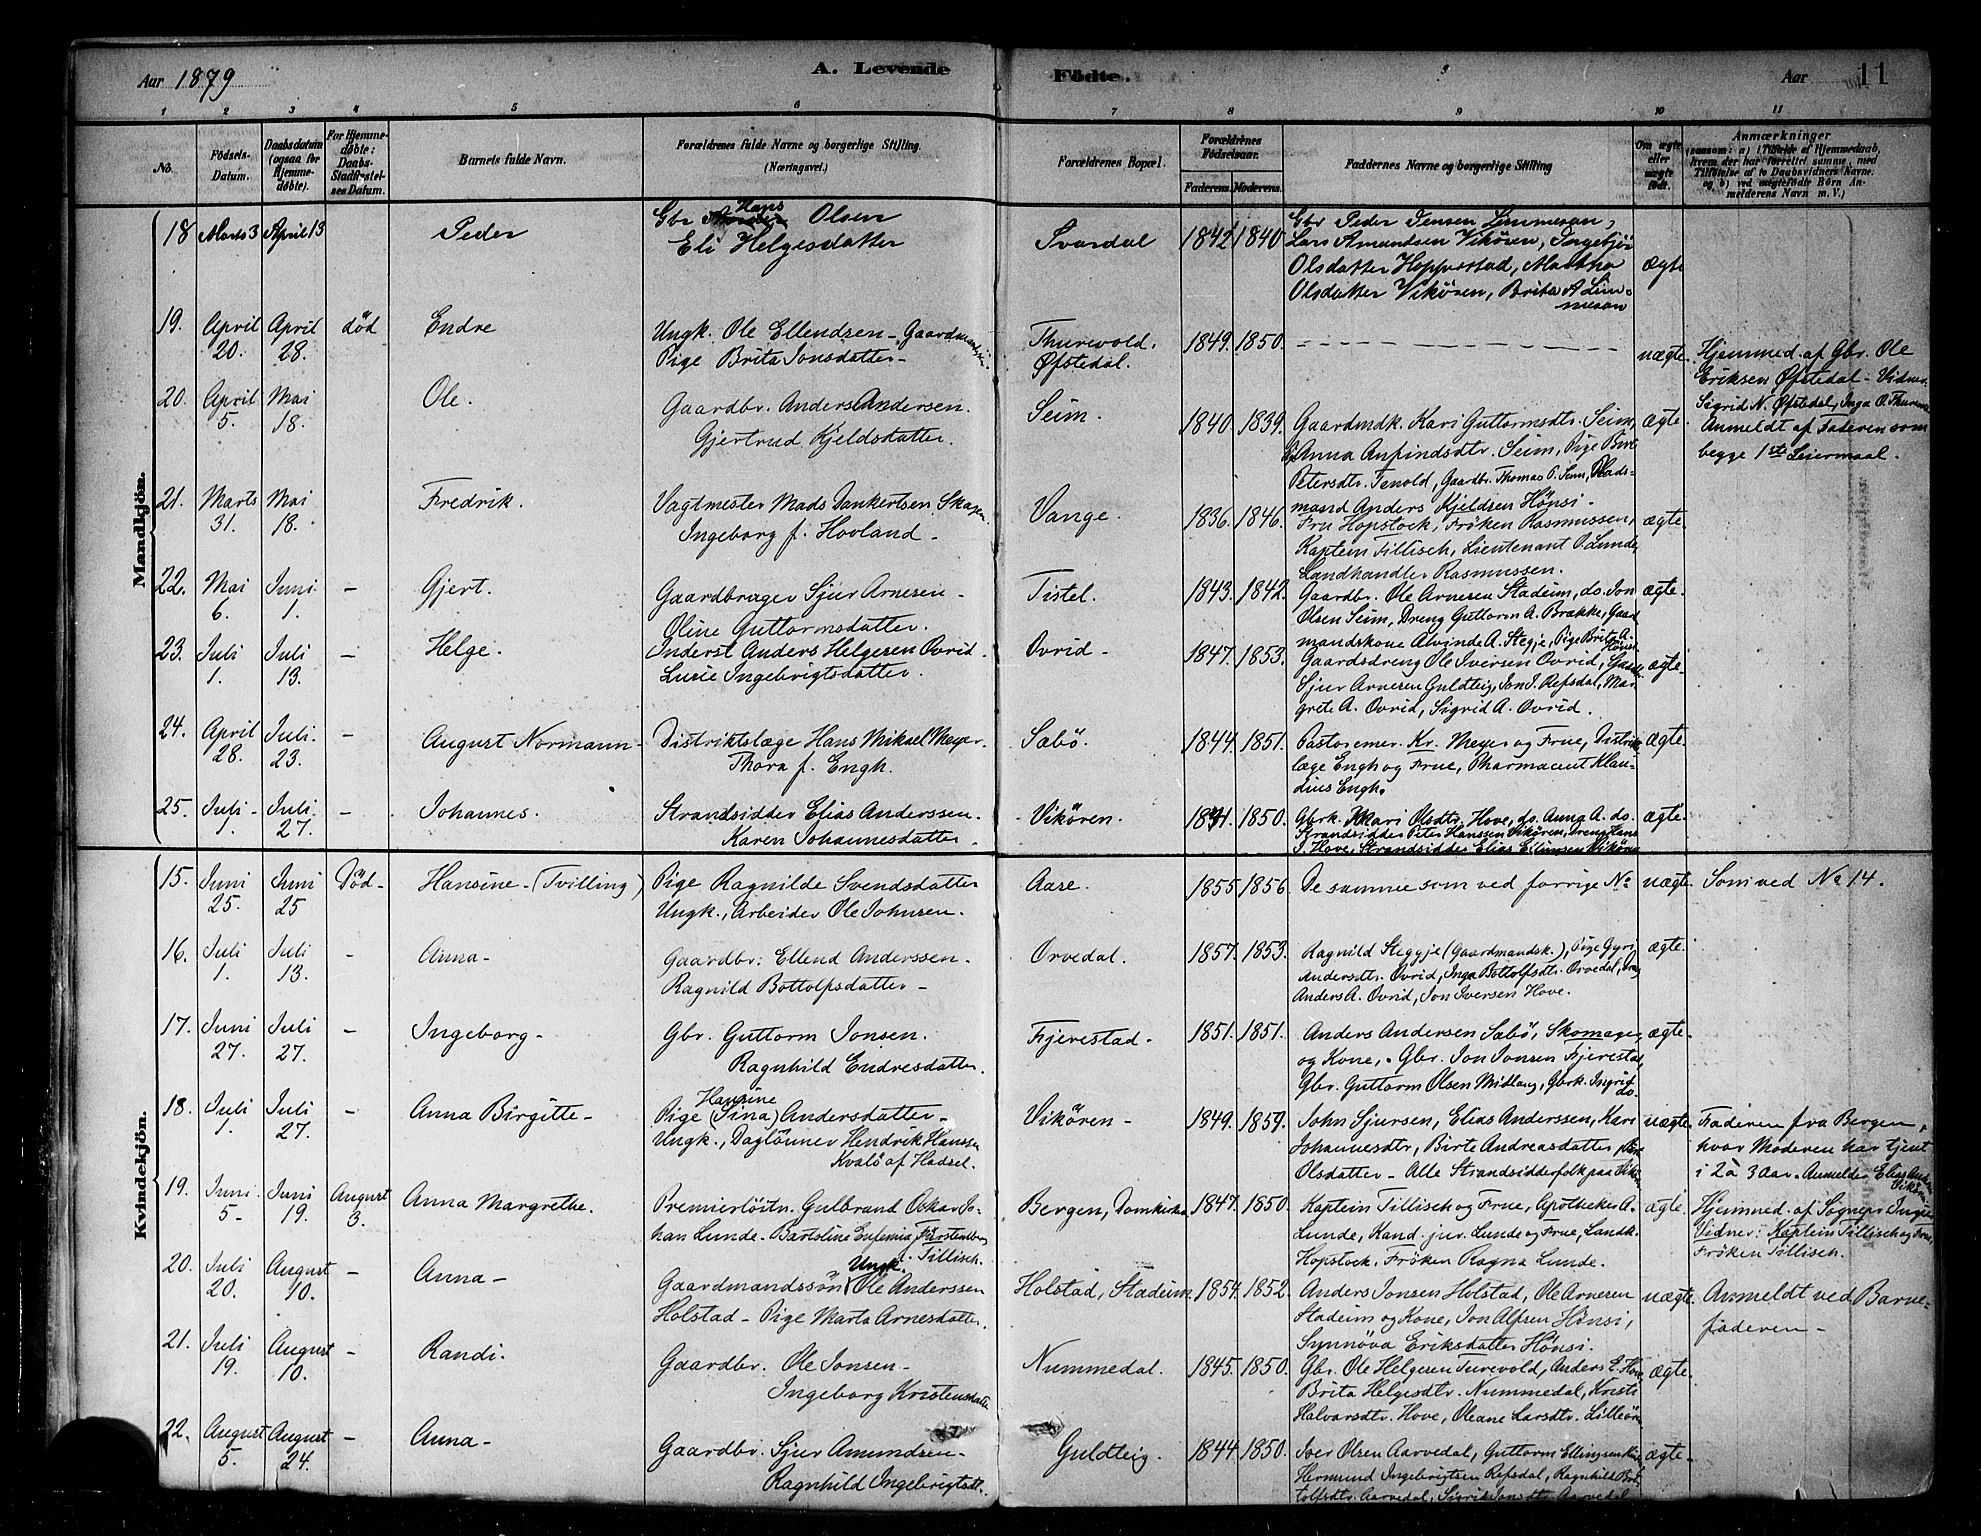 Aar 1879
A. Levende
Fødte.
Aar
11
1 2 3 4 5 6 7 8 9 10 11
No.
Fødsels-
Datum.
Daabsdatum
(ogsaa for
Hjemme-
døbte).
For Hjemme-
døbte:
Daabs-
Stadfæstel-
ses Datum.
Barnets fulde Navn.
Forældrenes fulde Navne og borgerlige Stilling.
(Næringsvei.)
Forældrenes Bopæl.
Forældrenes
Fødselsaar.
Faderens. Moderens.
Faddernes Navne og borgerlige Stilling
Om ægte
eller
uægte
født.
Anmærkninger
(saasom: a) i Tilfælde af Hjemmedaab,
hvem der har forrettet samme, med
Tilføielse af to Daabsvidners Navne;
og b) ved uægtefødte Børn An-
melderens Navn m. V.)
Mandkjön.
18 Marts 3 April 13
Peder
Gbr Hans Olsen
Eli Helgesdatter
Svardal 1842 1840
Gbr Peder Jensen Limmesan,
Lars Amundsen Vikören, Ingebjör
Olsdatter Hopperstad, Martha
Olsdatter Vikören, Brita A Lim-
mesan
ægte
19. April 20. April 28. död
Endre
Ungk. Ole Ellendsen - Gaardmandssön.
Pige Brita Jonsdatter -
Thurevold.
Øfstedal.
1849. 1850.
uægte.
Hjemmed. af Gbr. Ole
Eriksen Øfstedal - Vidner
Sigrid N. Øfstedal, Inga O. Thurevo
Anmeldt af Faderen som
begge 1ste Leiermaal.
20. April 5. Mai 18.
Ole.
Gaardbr. Anders Andersen.
Gjertrud Kjeldsdatter.
Seim. 1840. 1839.
Gaardmdk. Kari Guttormsdtr. Seim,
Anna Anfindsdtr. Seim, Pige Brit
Petersdtr. Tenold, Gaardbr. Thomas P. Seim, Plads-
mand Anders Kjeldsen Hönsi.
ægte.
21. Marts 31. Mai 18.
Fredrik.
Vagtmester Mads Dankertsen Skagen
Ingeborg f. Hovland -
Vange. 1836. 1846.
Fru Hopstock, Fröken Rasmussen,
Kaptein Tillisch, Lieutenant O. Lunde,
Landhandler Rasmussen.
ægte.
22. Mai 6. Juni 1. -
Gjert.
Gaardbruger Sjur Arnesen -
Oline Guttormsdatter.
Tistel. 1843. 1842.
Gaardbr. Ole Arnesen Stadeim, do. Jon
Olsen Seim, Dreng Guttorm A. Brække, Gaard
mandskone Alvinde A. Stegje, Pige Brita A. Hönsi
ægte.
23. Juli 1. Juli 13. -
Helge.
Inderst Anders Helgesen Ovrid.
Lusie Ingebrigtsdatter.
Ovrid - 1847. 1853.
Gaardsdreng Ole Iversen Ovrid, Gaard
Sjur Arnesen Guldteig, Jon J. Refsdal, Mar
grete A. Ovrid, Sigrid A. Ovrid.
ægte.
24. April 28. Juli 23. -
August Normann -
Distriktslæge Hans Mikael Meyer.
Thora f. Engh.
Sæbö. 1844. 1851.
Pastor emer. Kr. Meyer og Frue, Distrik
læge Engh og Frue, Pharmaceut Klau-
dius Engh.
ægte.
25. Juli 1. Juli 27. -
Johannes.
Strandsidder Elias Anderssen.
Karen Johannesdatter.
Vikören. 1850.
Gbrk. Kari Olsdtr. Hove, do. Anna A. do.
Strandsidder Peter Hanssen Vikören, Dreng Hans
J. Hove, Strandsidder Elias Ellingsen Vikören
ægte.
Kvindekjön.
15. Juni 25. Juni 25 Död -
Hansine - (Tvilling)
Pige Ragnilde Svendsdatter
Ungk., Arbeider Ole Johnsen.
Aase. 1855. 1856.
De samme som ved forrige No
uægte.
Som ved No 14.
16. Juli 1. Juli 13. -
Anna -
Gaardbr: Ellend Anderssen.
Ragnild Bottolfsdatter -
Orvedal. 1857. 1853.
Ragnild Steggje (Gaardmandsk.), Pige Gyri
Andersdtr. Ovrid, Inga Bottolfsdtr. Orvedal,
Anders A. Ovrid, Jon Iversen Hove.
ægte.
17. Juni 27. Juli 27. -
Ingeborg -
Gbr. Guttorm Jonsen.
Ragnhild Endresdatter.
Fjerestad - 1851. 1851.
Anders Andersen Sæbö, Skomager
og Kone, Gbr. Jon Jonsen Fjerestad,
Gbr. Guttorm Olsen Midlang, Gbrk. Ingrif
do.
ægte.
18. Juli 1. Juli 27. -
Anna Birgitte -
Hansine
Pige (Sina) Andersdatter -
Ungk., Daglönner Hendrik Hanssen
Kvalö af Hadsel.
Vikören - 1849. 1859.
John Sjursen, Elias Anderssen, Kari
Johannesdtr, Birte Andreasdatter
Olsdatter - Alle Strandsidderfolk paa Vikön
uægte.
Faderen fra Bergen,
hvor Moderen har tjent
i 2 à 3 Aar. Anmelder Elias Anders
Vikören
19. Juni 5 - Juni 19. August 3.
Anna Margrethe.
Premierlöitn. Gulbrand Oskar Jo-
han Lunde - Bartoline Eufemia Fürstenberg
f. Tillisch.
Bergen, Domkirke 1847. 1850.
Kaptein Tillisch og Frue, Apotheker A.
Lunde, Kand. jur. Lunde og Frue, Landk.
Hopstock, Fröken Ragna Lunde.
ægte.
Hjemmed. af Sognepr. Inger
Vidner: Kaptein Tillisch og Frue,
Fröken Tillisch.
20. Juli 20. August 10. -
Anna -
Ungk.
Gaardmandssön Ole Anderssen
Holstad - Pige Marta Arnesdatter.
Holstad, Stadeim. 1854. 1852.
Anders Jonsen Holstad, Ole Arnesen
Stadeim og Kone, Jon Alfsen Hönsi,
Synnöva Eriksdatter Hönsi.
uægte.
Anmeldt ved Barne-
faderen -
21. Juli 19. August 10. -
Randi.
Gaardbr. Ole Jonsen -
Ingeborg Kristensdatter
Nummedal. 1845. 1850.
Gbr. Ole Helgesen Turevold, Anders E. Hove,
Brita Helgesdtr. Nummedal, Kristi
Halvarsdtr. Hove, Oleane Larsdtr. Lilleör
ægte.
22. August 5. August 24. -
Anna -
Gaardbr. Sjur Amundsen -
Ragnhild Ingebrigtsdtr.
Guldteig. 1844 1850.
Iver Olsen Aarvedal, Guttorm Ellingsen
Hermund Ingebrigtsen Refsdal, Ragnhild Bot
tolfsdtr. Aarvedal, Sigrid Jonsdtr Aarvedal
ægte -